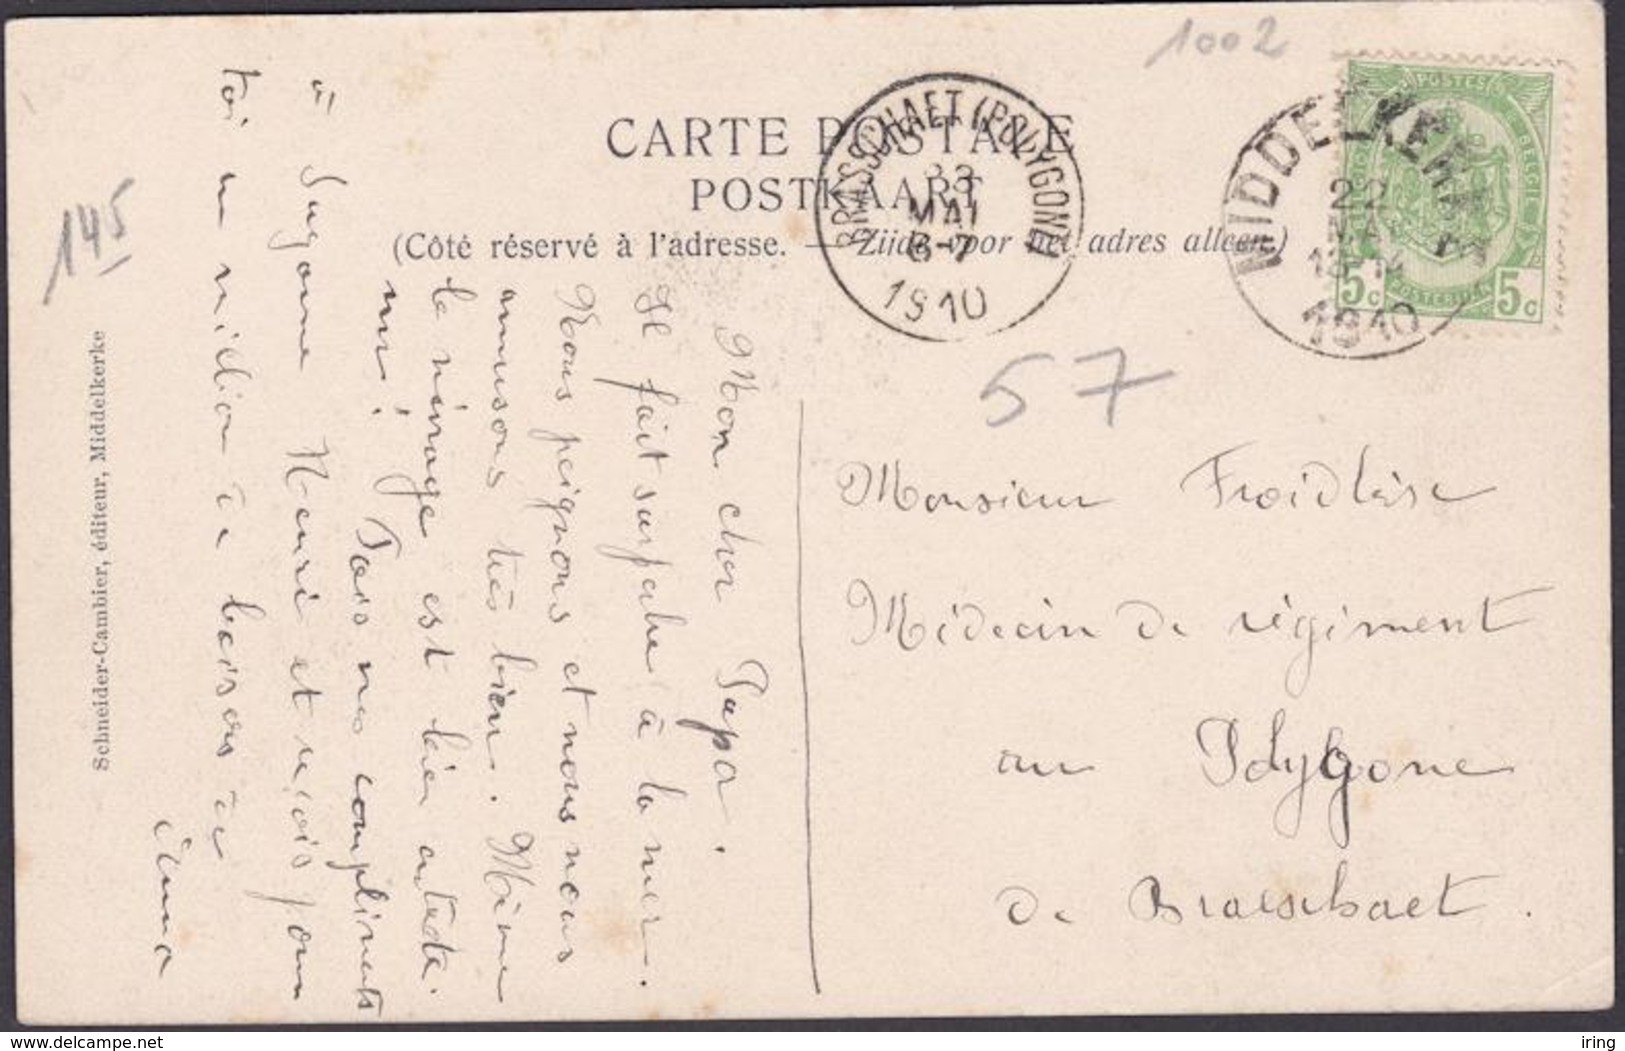 1002
145
CARTE POSTALE
POSTKAART
(Côté réservé à l'adresse. — Zijde voor het adres alleen.)
BRASSCHAET (POLYGONE)
23
MAI
6-7
1910
MIDDELKERKE
22
MAI
1910
POSTES
BELGIE
POSTERIJEN
5c
5c
57
Mon cher Papa.
Il fait superbe à la mer.
Nous peignons et nous nous
amusons très bien. Mème
le ménage est bien
Fais mes compliments
à Suzanne Henri et reçois pour
toi un million de baisers de
Emma
Monsieur Froidbise
Médecin de régiment
au Polygone
de Braeschaet.
Schneider-Cambier, éditeur, Middelkerke
www.delcampe.net
iring